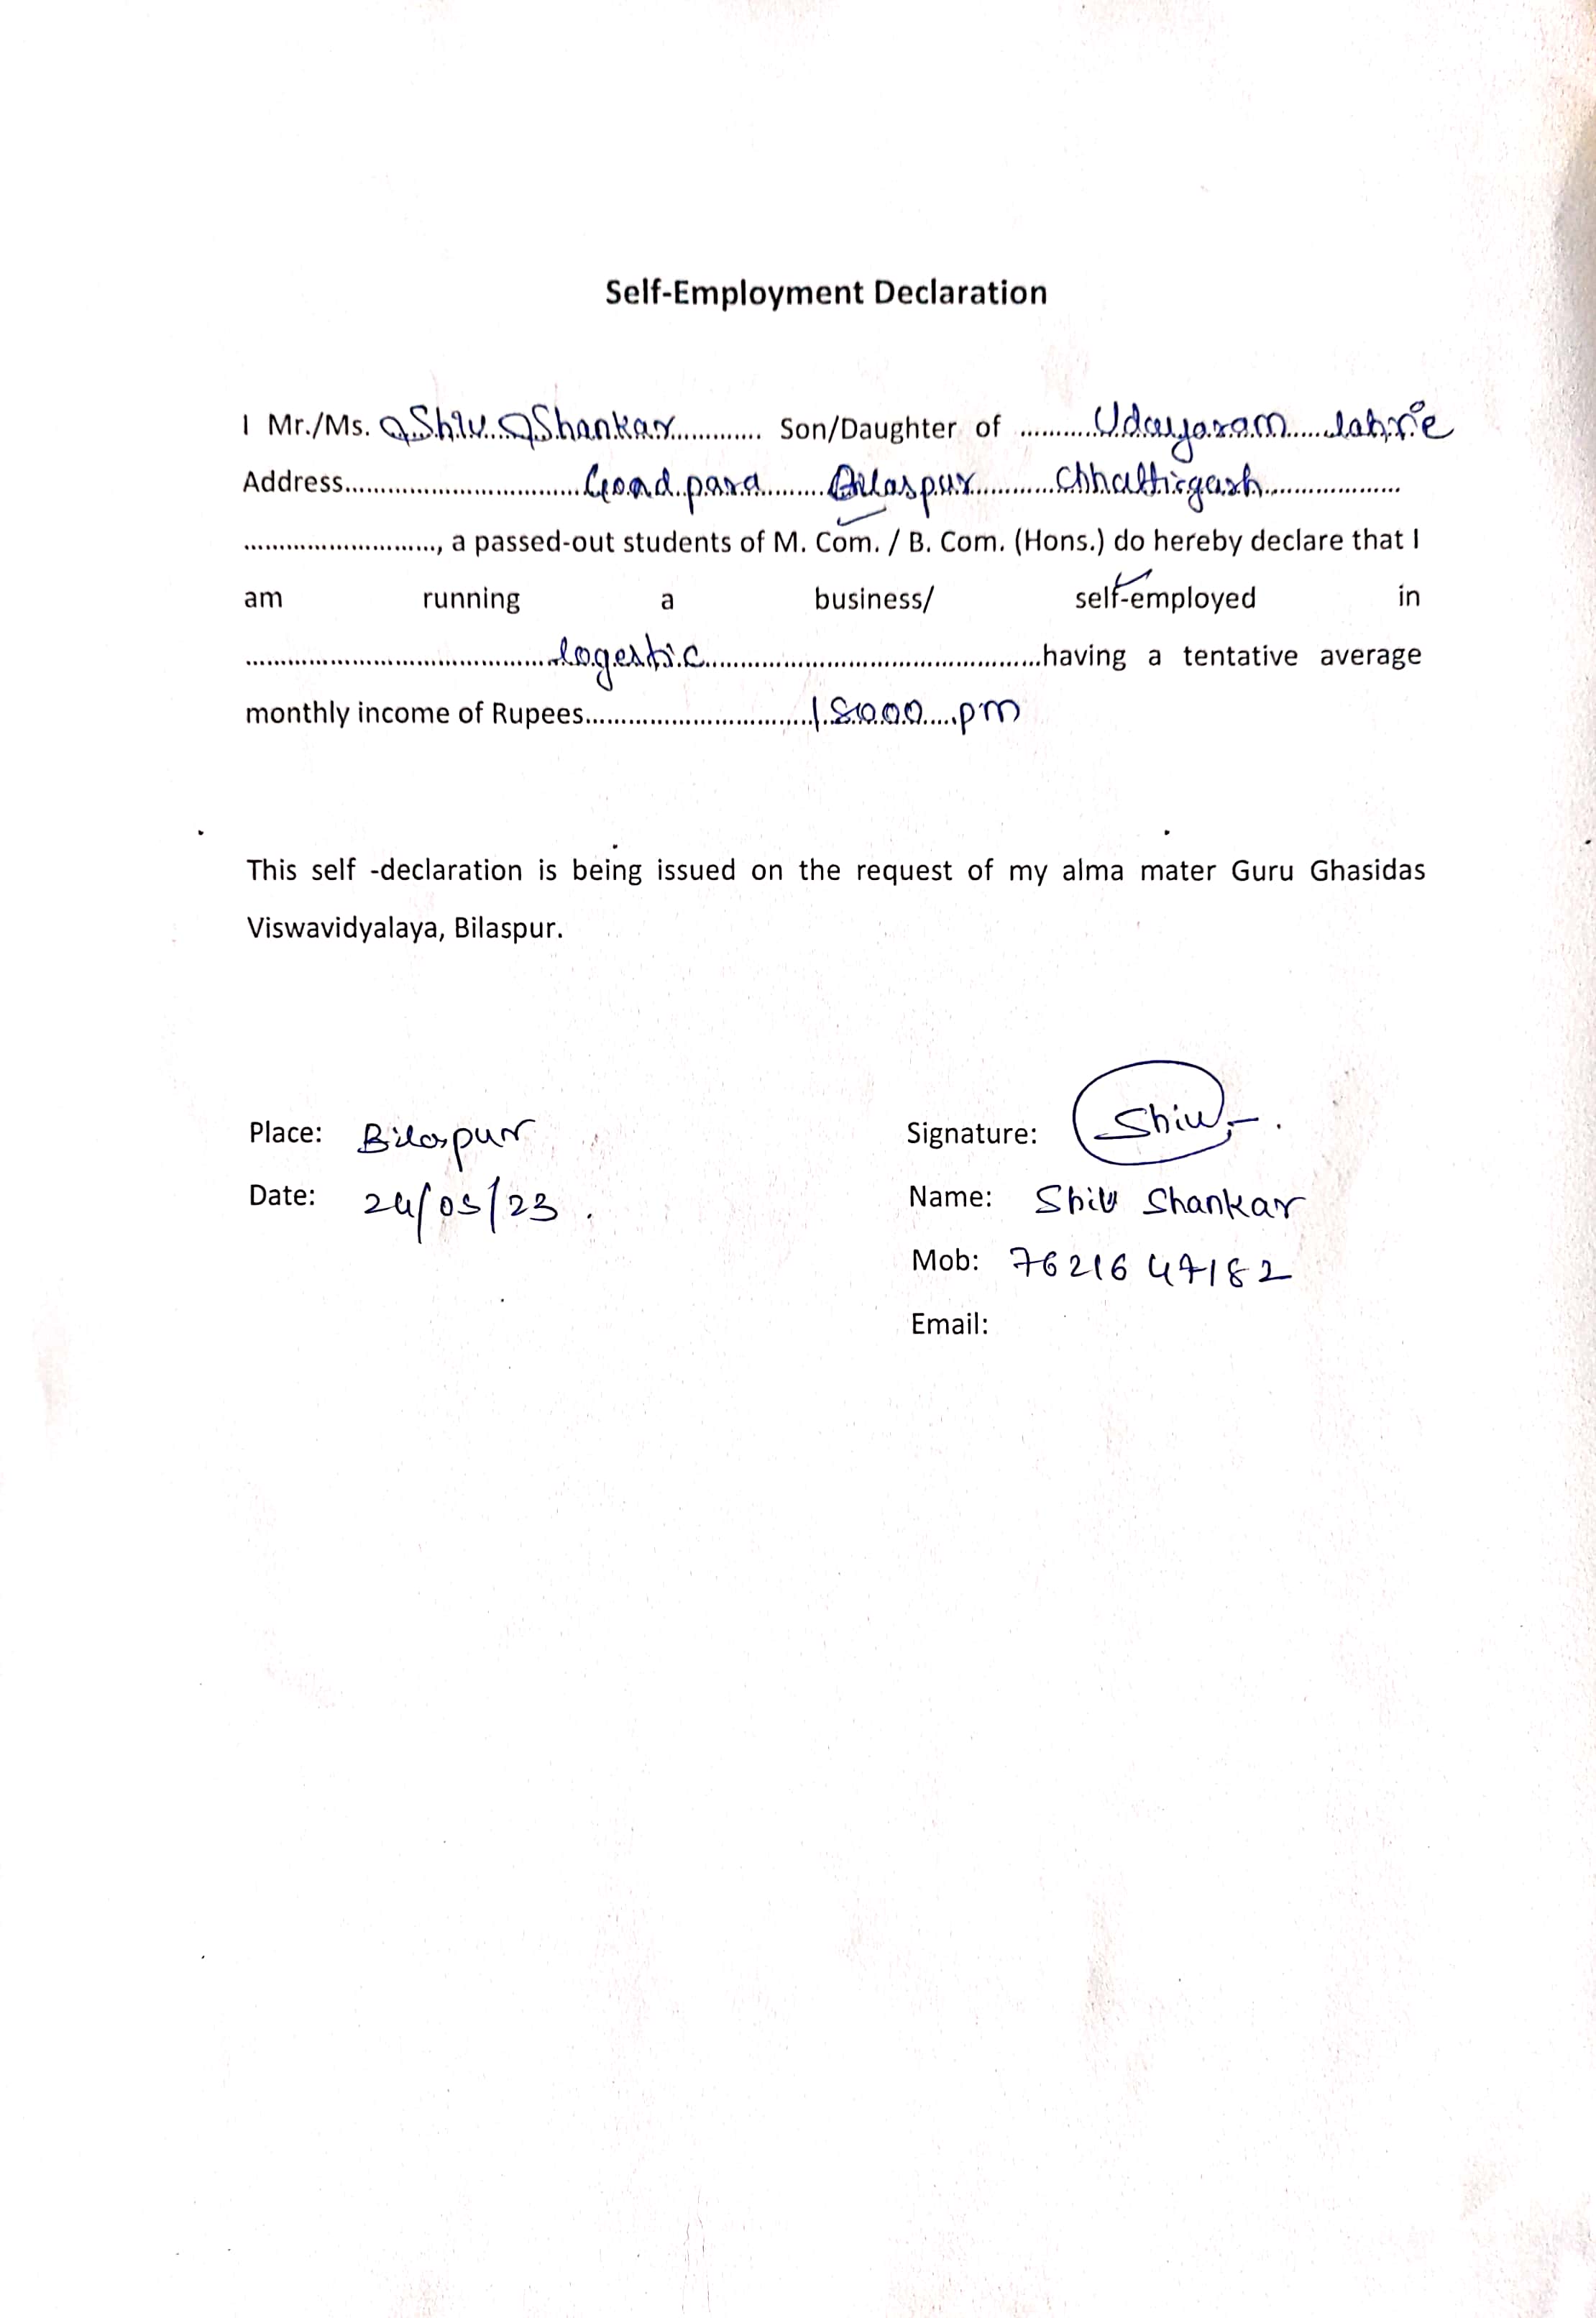 Self-Employment Declaration
I Mr./Ms. Shiv Shankar............ Son/Daughter of ..........Udayaram.....lahrie
Address.................................Gond para.........Bilaspur...........Chhattisgash...................
..........................., a passed-out students of M. Com. / B. Com. (Hons.) do hereby declare that I
am running a business/ self-employed in
...........................................logestic...............................................having a tentative average
monthly income of Rupees.................................18000.....pm
This self -declaration is being issued on the request of my alma mater Guru Ghasidas
Viswavidyalaya, Bilaspur.
Place: Bilaspur
Date: 24/05/23 .
Signature: Shiv
Name: Shiv Shankar
Mob: 7621647182
Email: